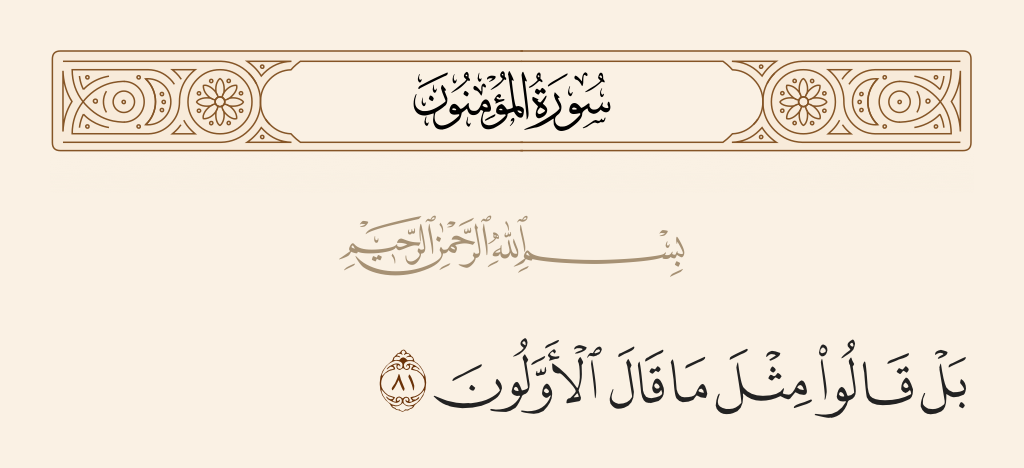 سُورَةُ المُؤْمِنُونَ
بِسْمِ ٱللَّهِ ٱلرَّحْمَٰنِ ٱلرَّحِيمِ
بَلْ قَالُوا۟ مِثْلَ مَا قَالَ ٱلْأَوَّلُونَ ٨١